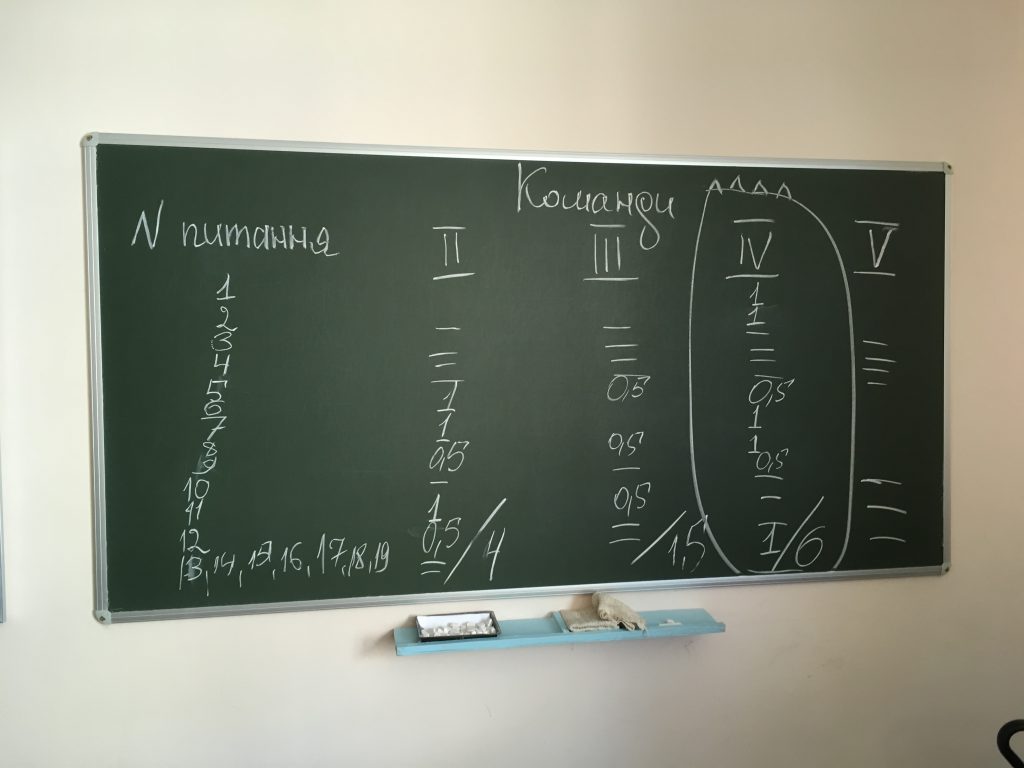 Команди
N питання II III IV V
1 1
2 – – 1 –
3 – – – –
4 – – – –
5 1 0,5 0,5
6 1 1
7 0,5 0,5 1
8 – – 0,5
9
10 1 0,5 – –
11 –
12 0,5 – 1 –
13, 14, 15, 16, 17, 18, 19 = /4 /1,5 /6